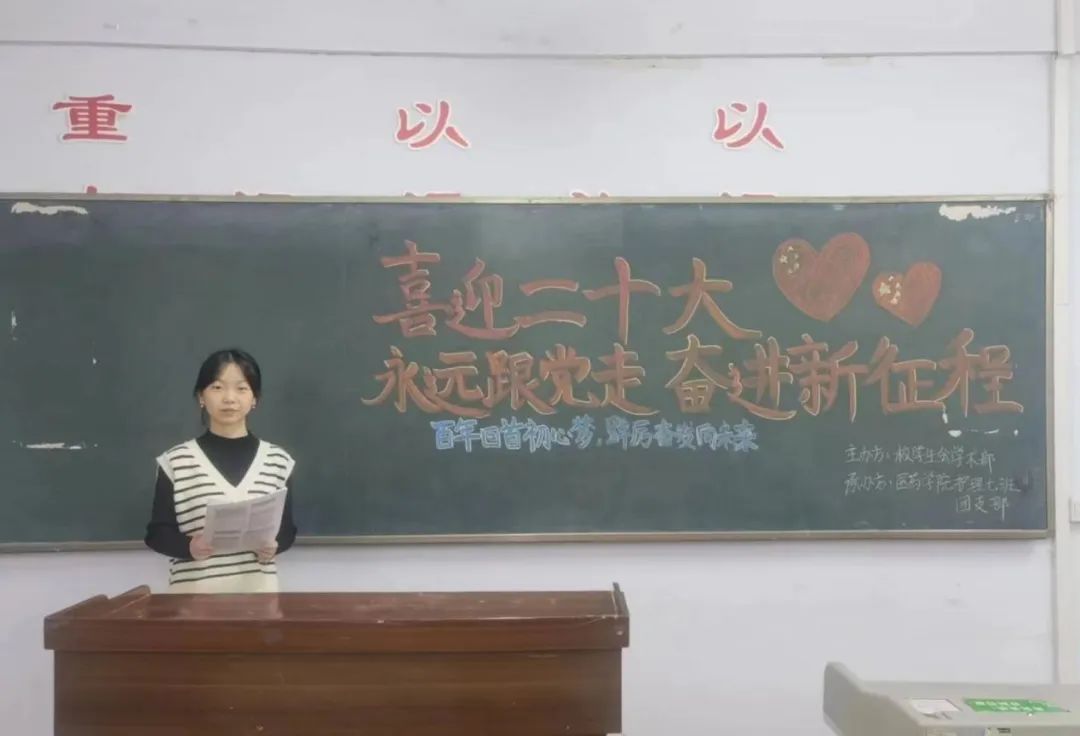 重 以 以
喜迎二十大
永远跟党走 奋进新征程
百年回首初心梦,踔厉奋发向未来
主办方:校学生会学术部
承办方:医药学院护理七班
团支部